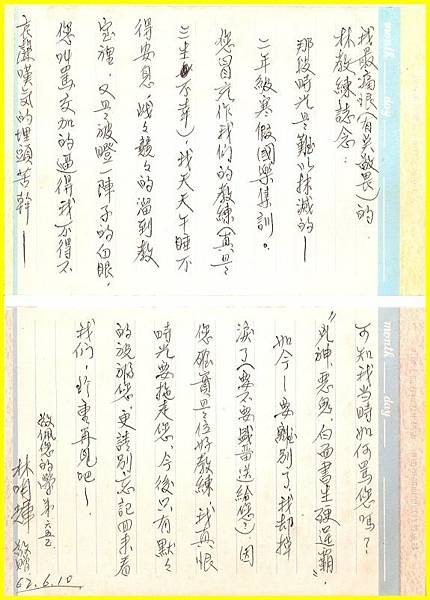 我最痛恨(有天敬畏)的
林教練誌念:
那段時光是難以抹滅的—
二年級寒假國樂集訓。
您冒充作我们的教練(真是
三生不幸),我天天午睡不
得安息,战战兢兢的溜到教
室裡,又是被瞪一陣子的白眼,
您叫罵交加的逼得我不得不
哀聲嘆气的埋頭苦幹—
month day
可知我当時如何罵您嗎?
"凶神惡煞,白面書生硬逞霸",
如今—要離別了,我却掉
淚了(要不要戴番送給您?)因
您確實是位好教練,我真恨
時光要拖走您,今後只有默々
的祝福您,更請別忘記回来看
我们,珍重再見吧—
敬佩您的學弟
林明輝 敬贈
62.6.10
month day